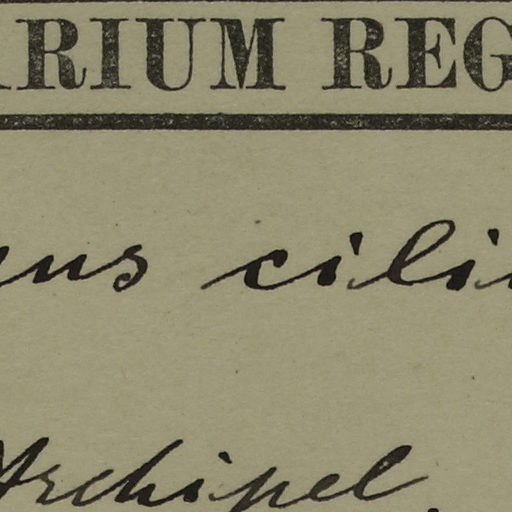 ARIUM REG
eus cili
Archipel.